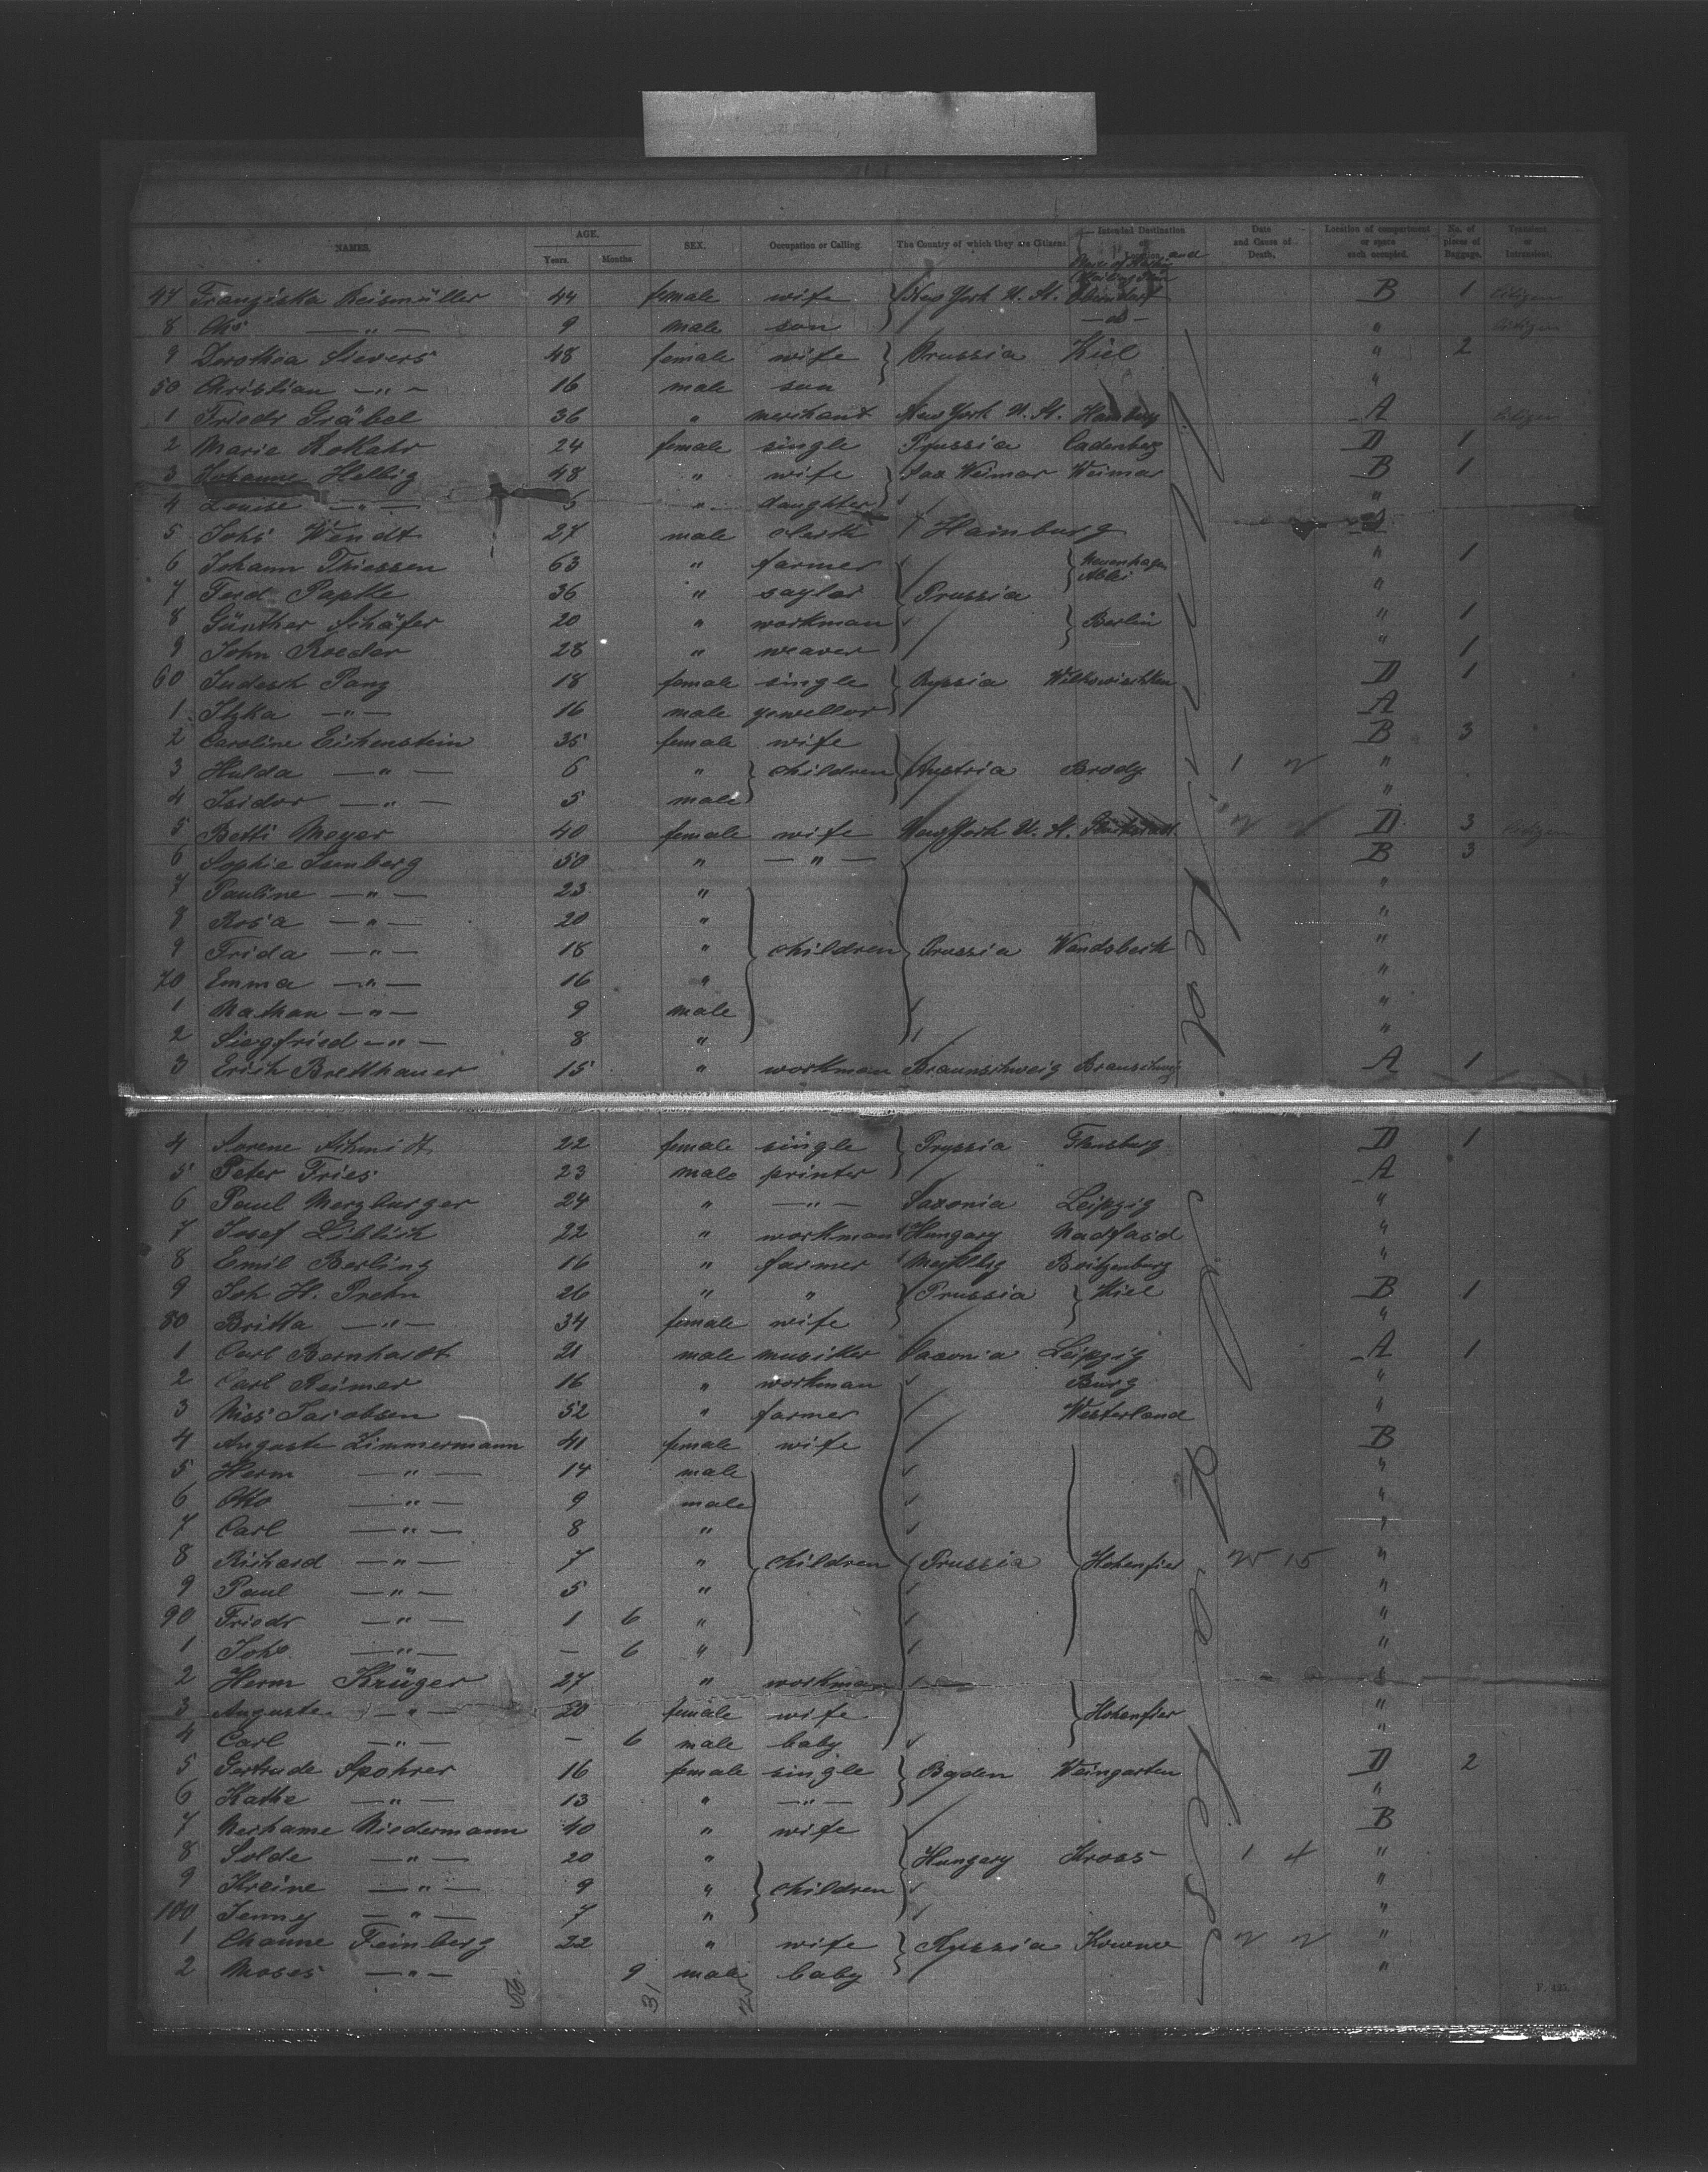 NAMES. AGE. Years. Months. SEX. Occupation or Calling. The Country of which they are Citizens. Intended Destination or Location, and Date and Cause of Death. Location of compartment or space each occupied. No. of pieces of Baggage. Transient or Intransient.
47 Franziska Reismüller 44 female wife New York U. St. B 1 Citizen
8 Otto —"— 9 male son —do— " Citizen
9 Dorothea Sievers 48 female wife Prussia Kiel " 2
50 Christian —"— 16 male son "
1 Friedr Gräbel 36 " merchant New York U. St. Hamburg A Citizen
2 Marie Rokahr 24 female single Prussia Cadenberg D 1
3 Johanne Helbig 48 " wife Sax Weimar Weimar B 1
4 Louise —"— 5 " daughter "
5 Johs Wendt 27 male clerk Hamburg
6 Johann Thiessen 63 " farmer " 1
7 Ferd. Papke 36 " saylor Prussia "
8 Günther Schäfer 20 " workman Berlin " 1
9 John Roeder 28 " weaver " 1
60 Judesch Panz 18 female single Russia Wilkowischken D 1
1 Itzka —"— 16 male yeweller A
2 Caroline Eichenstein 35 female wife B 3
3 Hulda —"— 6 " children Austria Brody 1 2 "
4 Isidor —"— 5 male "
5 Betti Meyer 40 female wife New York U. St. D 3 Citizen
6 Sophie Isenberg 50 " —"— B 3
7 Pauline —"— 23 " "
8 Rosa —"— 20 " "
9 Frida —"— 18 " children Prussia Wandsbeck "
70 Emma —"— 16 " "
1 Nathan —"— 9 male "
2 Siegfried —"— 8 " "
3 Erich Bretthauer 15 " workman Braunschweig Braunschwg A 1
4 Sorene Schmidt 22 female single Prussia Flensburg D 1
5 Peter Fries 23 male printer A
6 Paul Merzburger 24 " —"— Saxonia Leipzig "
7 Josef Liblich 22 " workman Hungary "
8 Emil Berling 16 " farmer Mecklbg Boitzenburg "
9 Joh H. Prehn 26 " " Prussia Kiel B 1
80 Britta —"— 34 female wife "
1 Carl Bernhardt 21 male musiker Saxonia Leipzig A 1
2 Carl Reimer 16 " workman Burg "
3 Niss Jacobsen 52 " farmer Westerland "
4 Auguste Zimmermann 41 female wife B
5 Herm —"— 14 male "
6 Otto —"— 9 male "
7 Carl —"— 8 " "
8 Richard —"— 7 " children Prussia Hohenfier 25 15 "
9 Paul —"— 5 " "
90 Friedr —"— 1 6 " "
1 Johs —"— — 6 " "
2 Herm Krüger 27 " workman "
3 Auguste —"— 20 female wife Hohenfier "
4 Carl —"— — 6 male baby "
5 Gertrude Spohrer 16 female single Baden Weingarten D 2
6 Kathe —"— 13 " —"— "
7 Nechame Niedermann 40 " wife B
8 Solde —"— 20 " Hungary Kross 1 4 "
9 Kreine —"— 9 " children "
100 Jenny —"— 7 " "
1 Channe Feinberg 22 " wife Russia Kowno 2 2 "
2 Moses —"— 9 male baby "
31
F. 425.